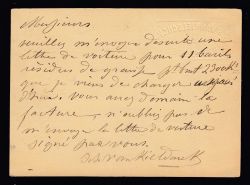 Messieurs
veuillez m'envoyer de suite une
lettre de voiture pour 11 barils
résidus de graisse
que je viens de charger
vous aurez demain la
facture, n'oubliez pas de
m'envoyer la lettre de voiture
signé par vous.